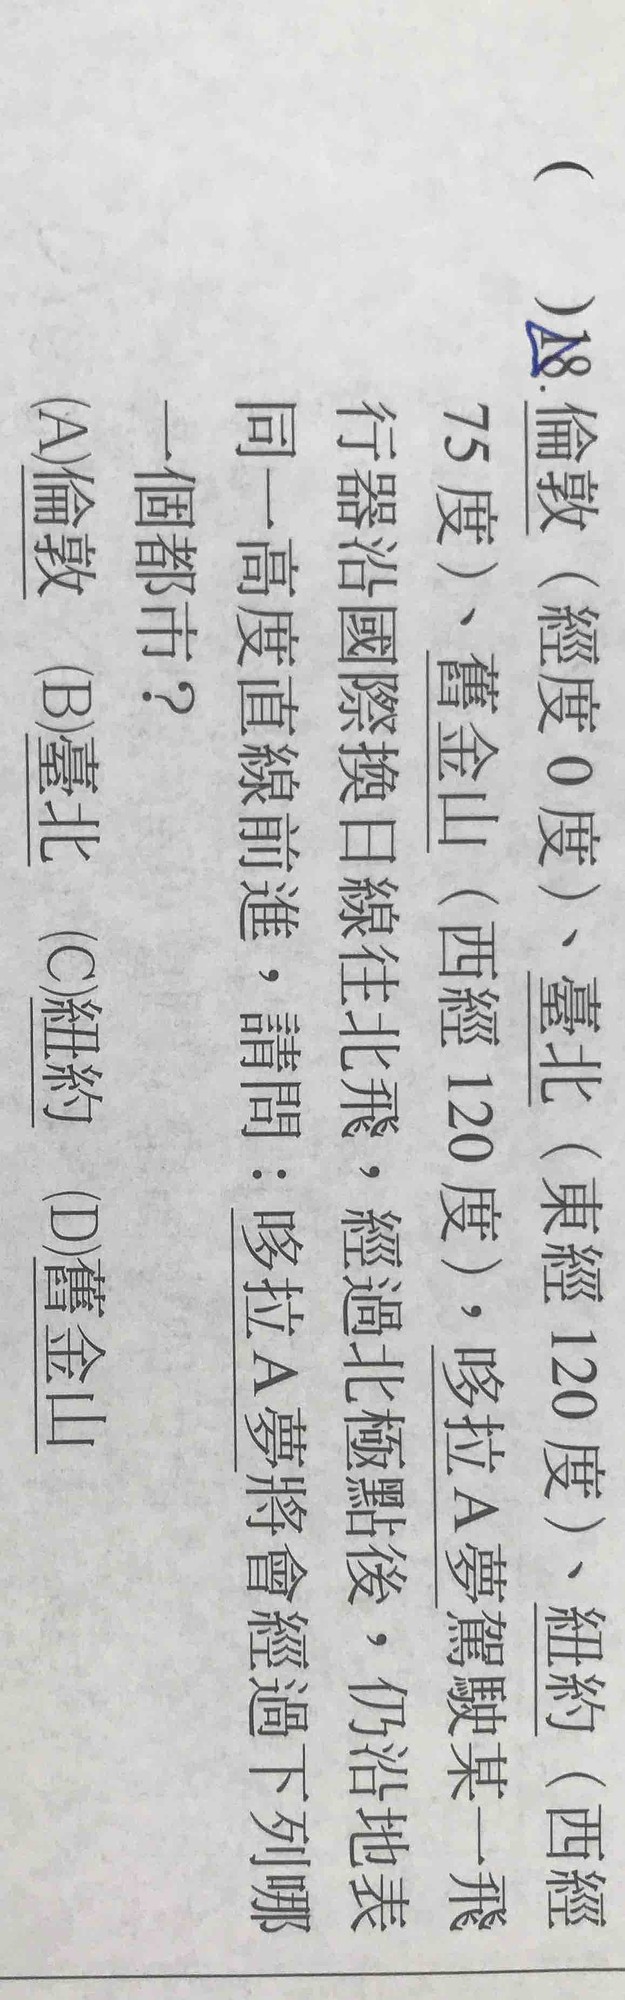 (　)18.倫敦（經度 0 度）、臺北（東經 120 度）、紐約（西經
75 度）、舊金山（西經 120 度），哆拉 A 夢駕駛某一飛
行器沿國際換日線往北飛，經過北極點後，仍沿地表
同一高度直線前進，請問：哆拉 A 夢將會經過下列哪
一個都市？
(A)倫敦　(B)臺北　(C)紐約　(D)舊金山